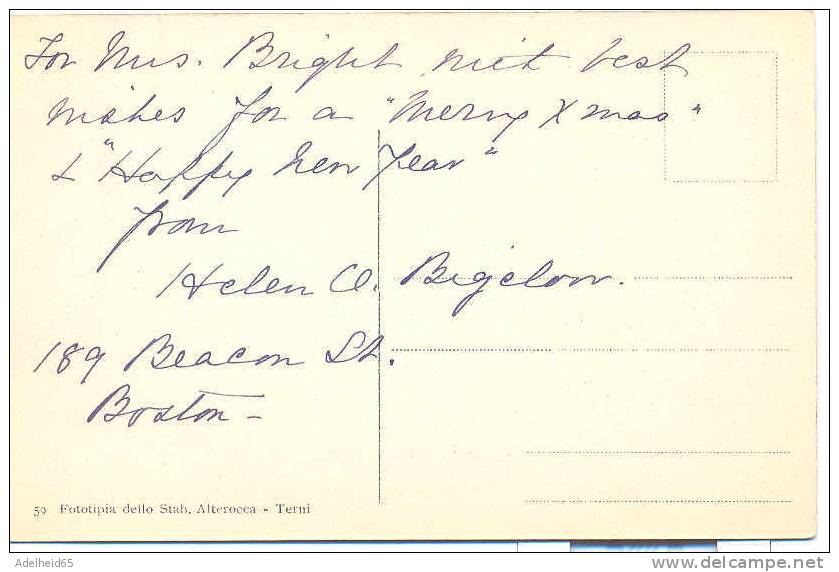 For Mrs. Bright with best
wishes for a "Merry Xmas"
& "Happy New Year"
from
Helen O. Bigelow.
189 Beacon St.
Boston -
59 Fototipia dello Stab. Alterocca - Terni
Adelheid65
www.delcampe.net